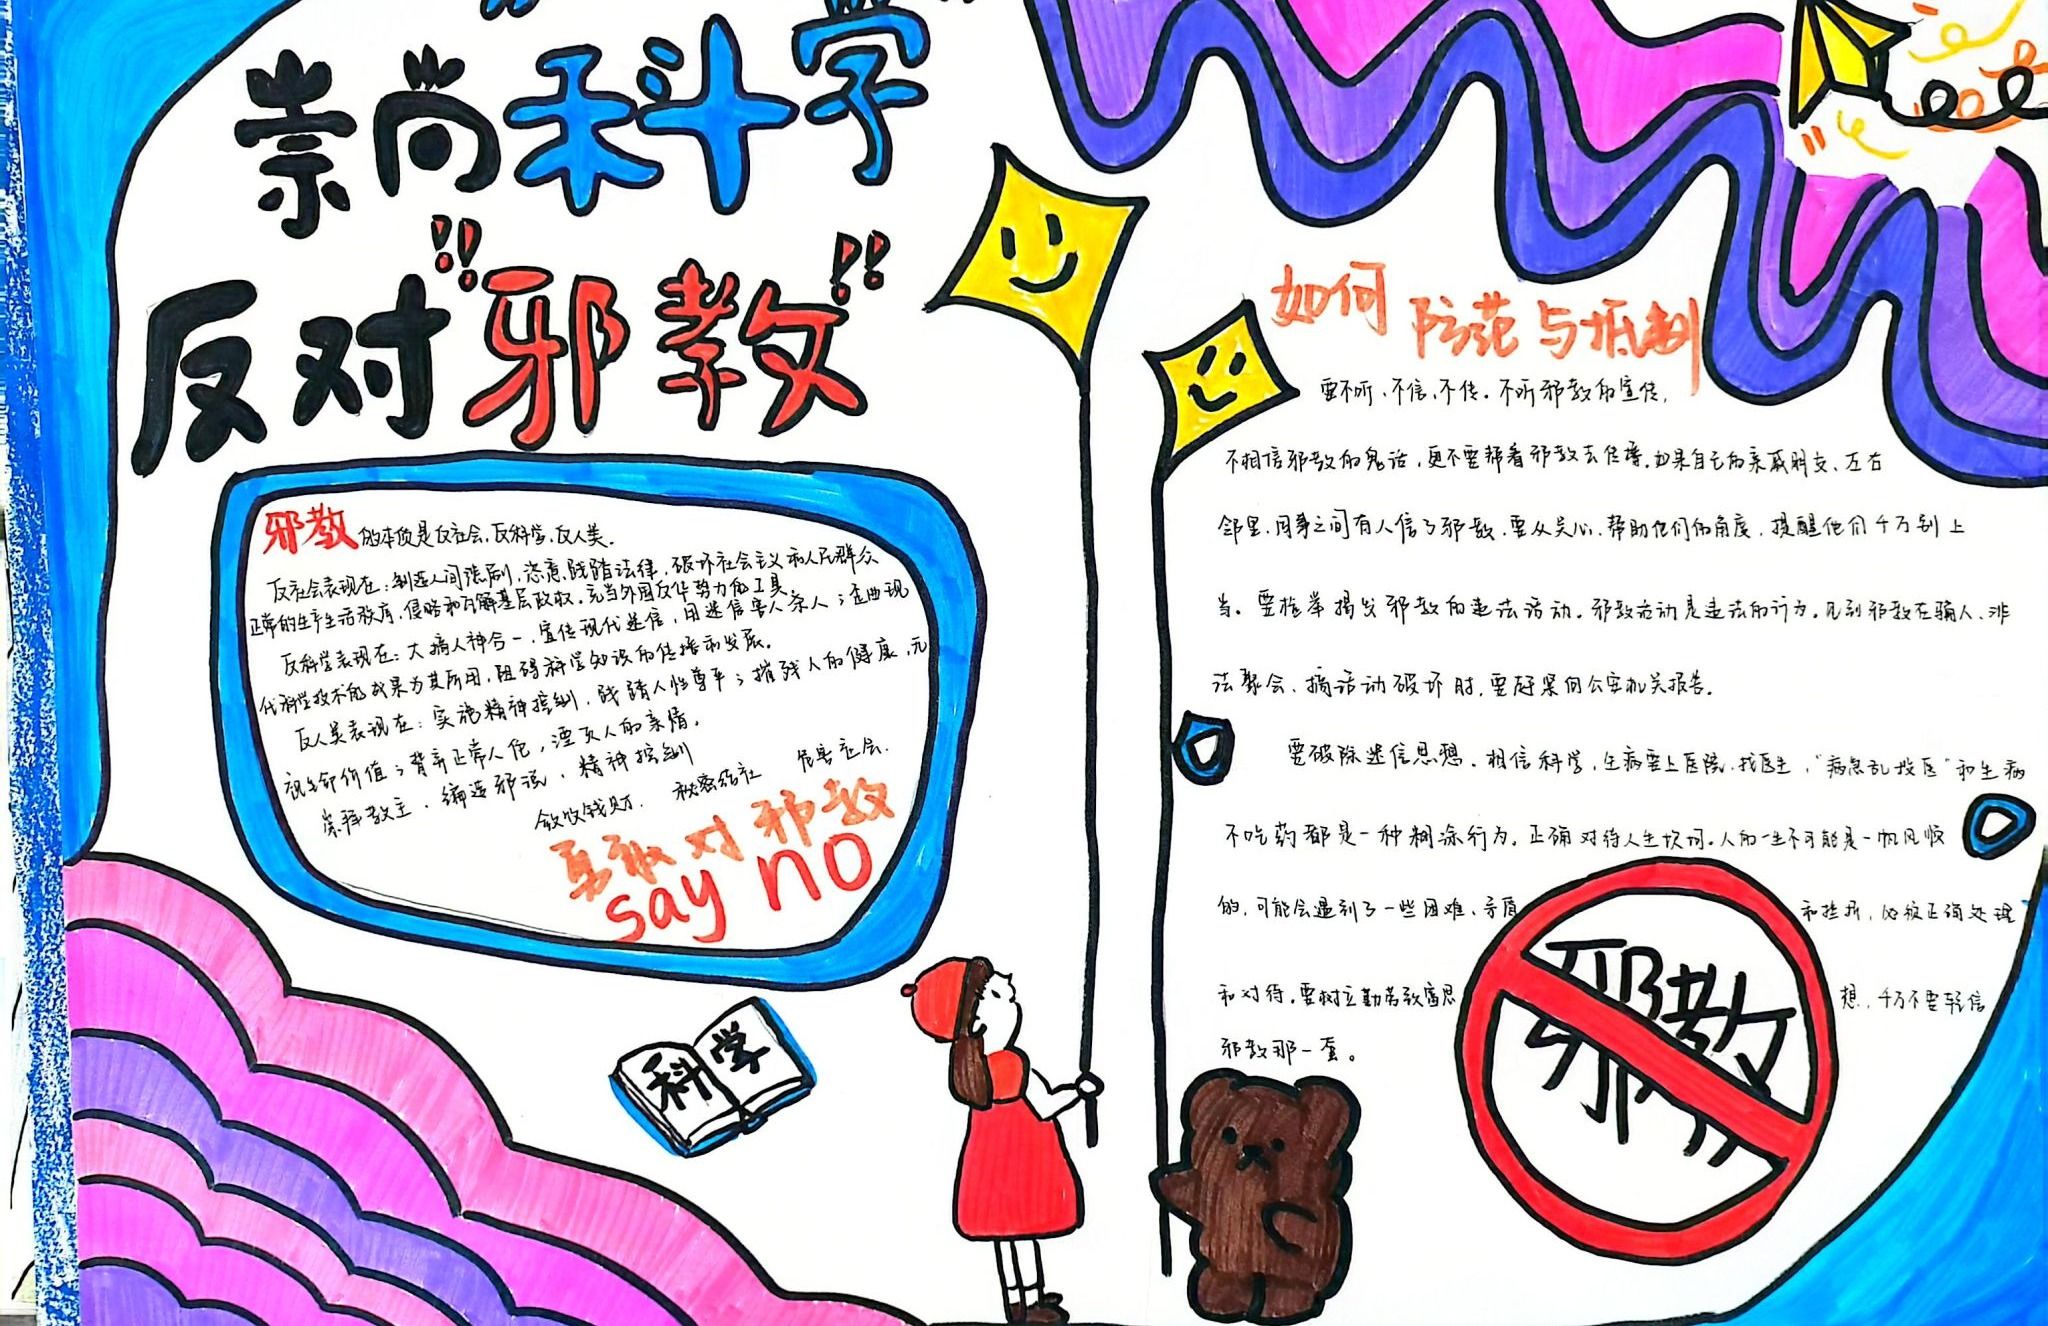 崇尚“科学”
反对“邪教”
!!
!!
邪教的本质是反社会,反科学,反人类.
反社会表现在:制造人间悲剧,恣意践踏法律,破坏社会主义和人民群众
正常的生产生活秩序,侵略和瓦解基层政权,充当外国反华势力的工具
反科学表现在:大搞人神合一,宣传现代迷信,用迷信害人杀人;歪曲现
代科学技术的成果为其所用,阻碍科学知识的传播和发展。
反人类表现在:实施精神控制,践踏人性尊严;摧残人的健康,无
视生命价值;背弃正常人伦,湮灭人的亲情。
崇拜教主、编造邪说、精神控制
敛收钱财. 秘密结社 危害社会.
勇敢对邪教
say no
科学
如何防范与抵制
要不听、不信、不传。不听邪教的宣传,
不相信邪教的鬼话,更不要帮着邪教去传播.如果自己的亲戚朋友、左右
邻里,同事之间有人信了邪教,要从关心、帮助他们的角度,提醒他们千万别上
当。要检举揭发邪教的违法活动。邪教活动是违法的行为,见到邪教在骗人、非
法聚会、搞活动破坏时,要赶紧向公安机关报告。
要破除迷信思想。相信科学,生病要上医院,找医生,“病急乱投医”和生病
不吃药都是一种糊涂行为。正确对待人生坎坷。人的一生不可能是一帆风顺
的,可能会遇到了一些困难、矛盾和挫折,必须正确处理
和对待。要树立勤劳致富思想,千万不要轻信
邪教那一套。
邪教